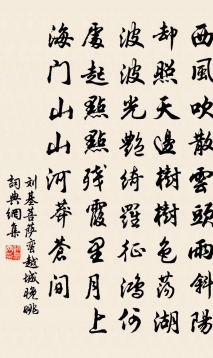 西風吹散雲頭雨斜陽
却照天邊樹樹色蕩湖
波波光艷綺羅征鴻何
處起點點残霞里月上
海门山山河莽蒼間
刘基菩薩蛮越城晚眺
詞典網集